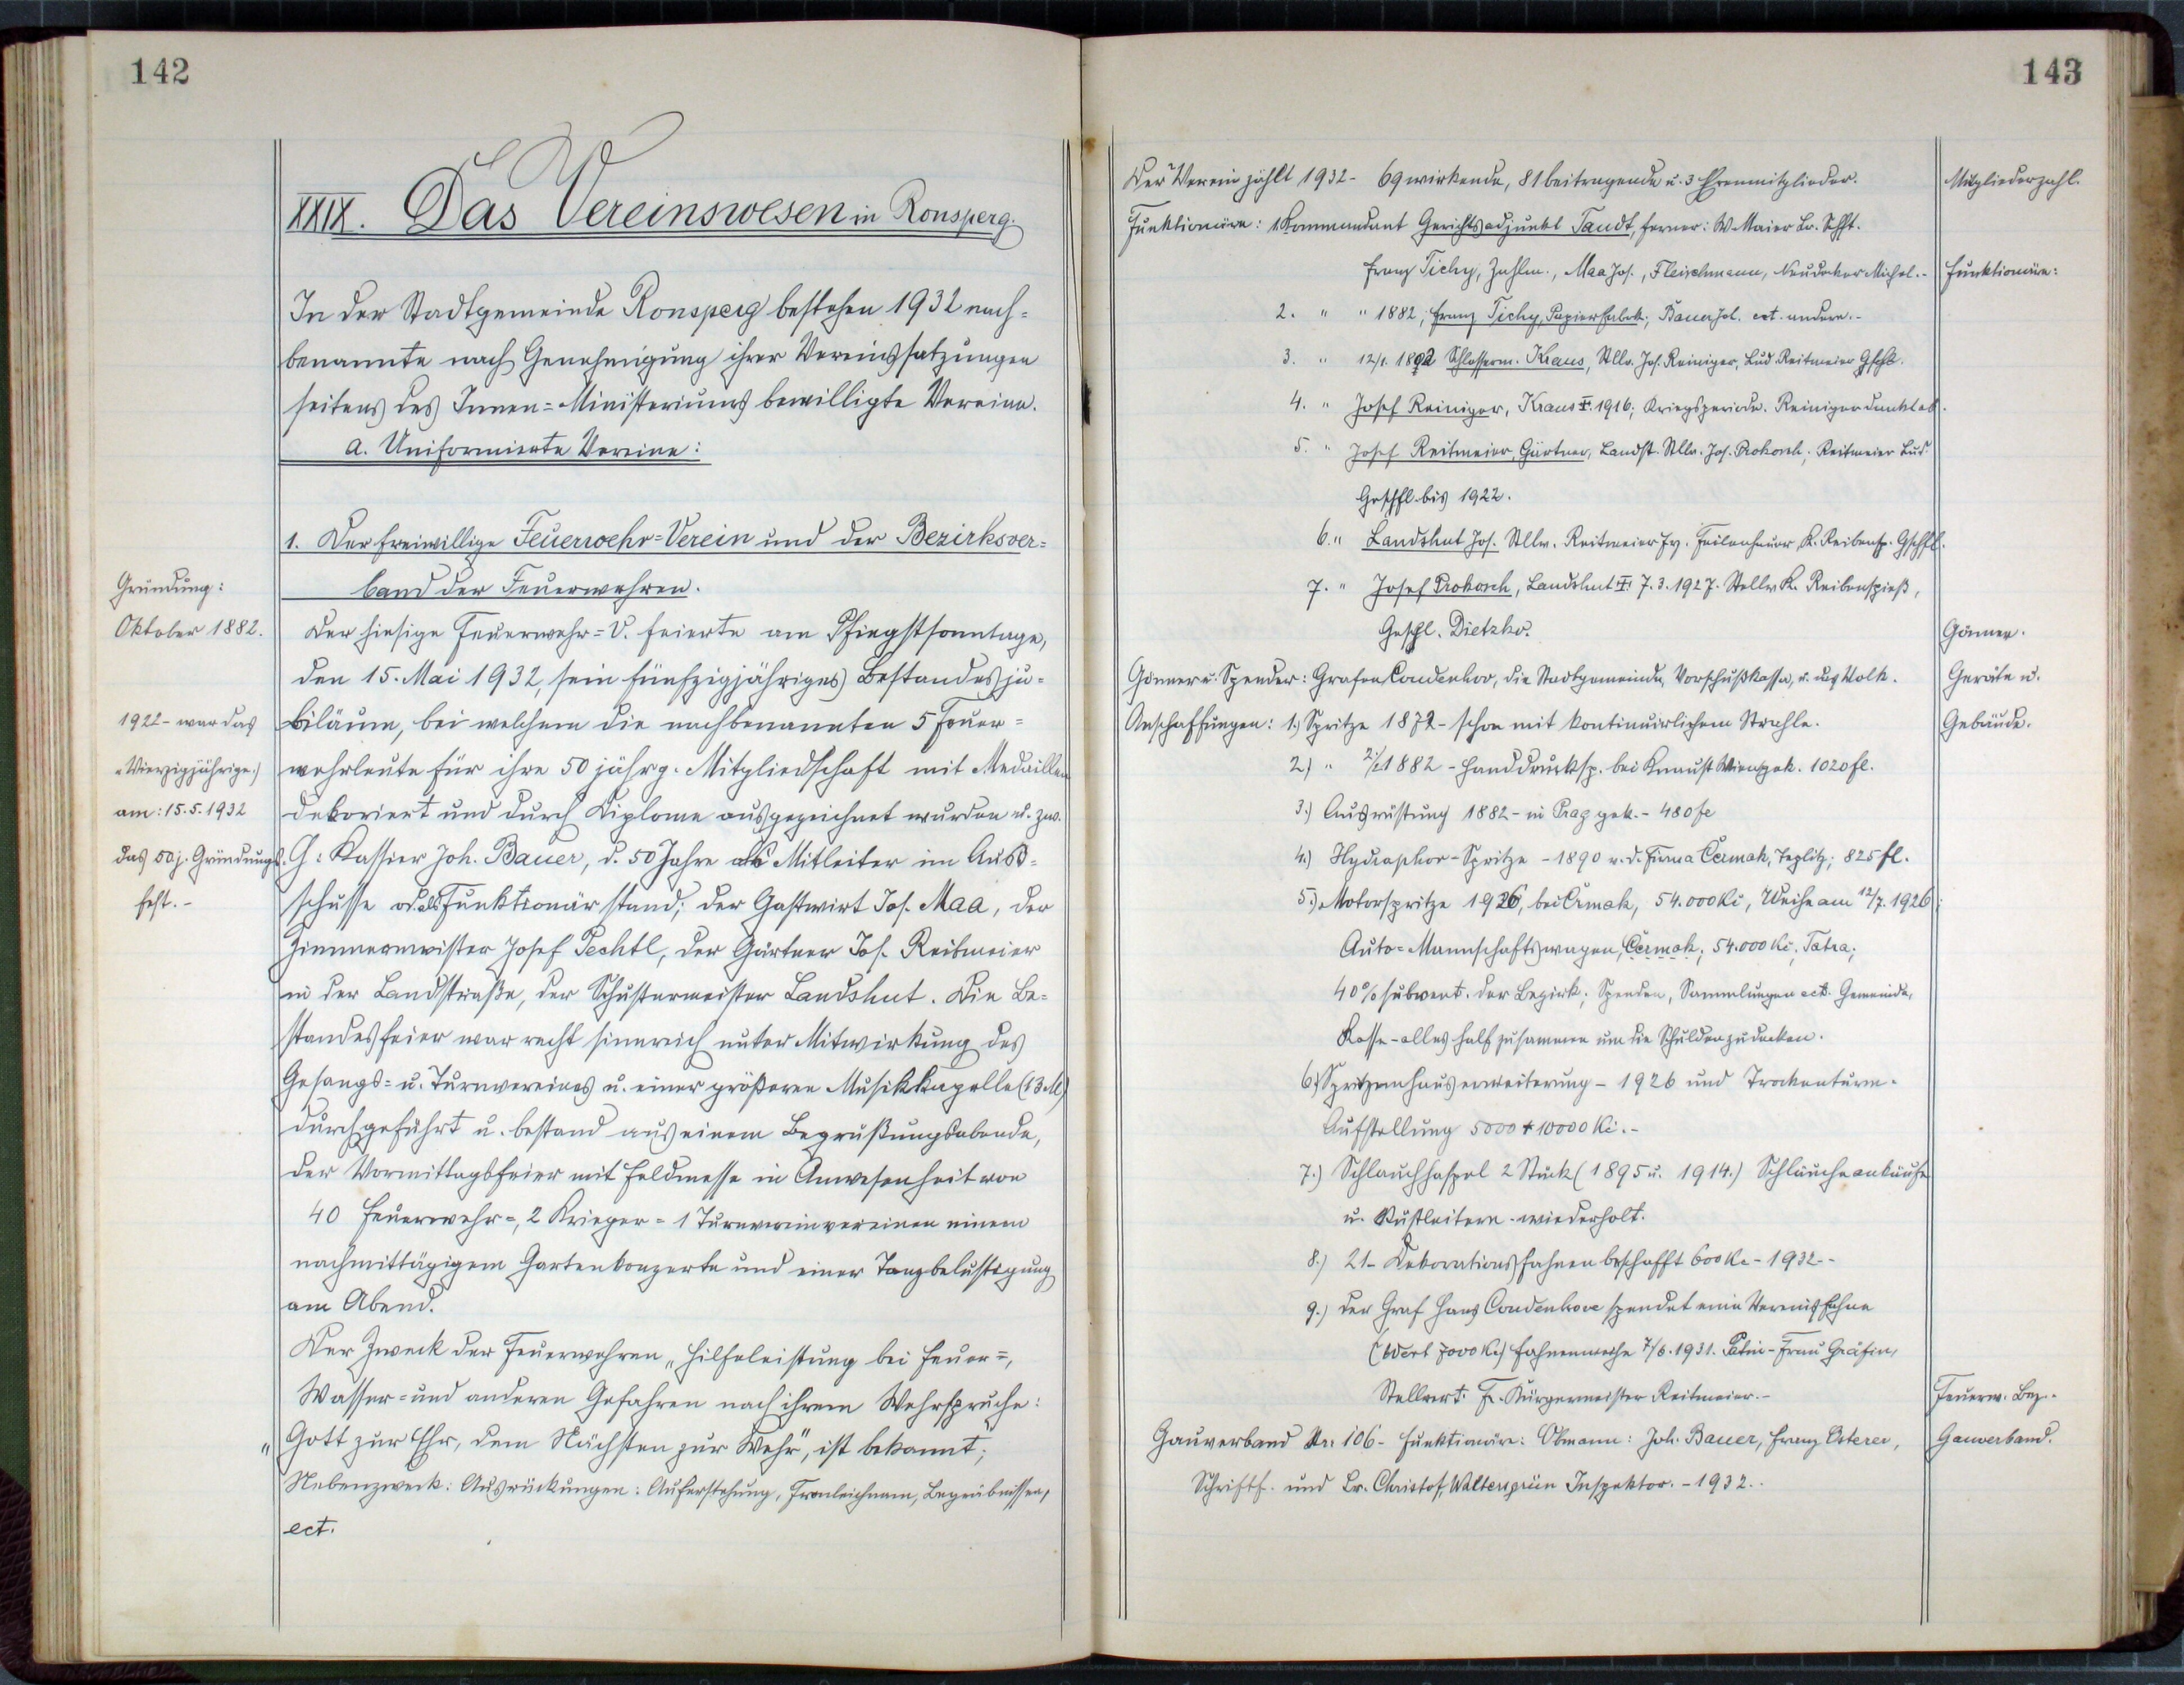 142
XXIX. Das Vereinswesen in Ronsperg.
In der Stadtgemeinde Ronsperg bestehen 1932 nach=
benannte nach Genehmigung ihrer Vereinssatzungen
seitens des Innen=Ministeriums bewilligte Vereine.
a. Uniformierte Vereine:
1. Der freiwillige Feuerwehr=Verein und der Bezirksver=
band der Feuerwehren.
Gründung:
Oktober 1882.
Der hiesige Feuerwehr=V. feierte am Pfingstsonntage,
den 15. Mai 1932, sein fünfzigjähriges Bestandesju=
1922 - war das
biläum, bei welchem die nachbenannten 5 Feuer=
"Vierzigjährige")
wehrleute für ihre 50 jährg. Mitgliedschaft mit Medaillen
am: 15.5.1932
dekoriert und durch Diplome ausgezeichnet wurden u. zw.
das 50j. Gründungs-
H: Kassier Joh. Bauer, d. 50 Jahre als Mitleiter im Aus=
fest.-
schusse od. als Funktionär stand; der Gastwirt Jos. Maa, der
Zimmermeister Josef Pechtl, der Gärtner Jos. Reitmeier
in der Landstraße, der Schustermeister Landshut. Die Be=
standesfeier war recht sinnreich unter Mitwirkung des
Gesangs= u. Turnvereines u. einer größeren Musikkapelle (13 M)
durchgeführt u. bestand aus einem Begrüßungsabende,
der Vormittagsfeier mit Feldmesse in Anwesenheit von
40 Feuerwehr=, 2 Krieger= 1 Turnvereinvereinen einem
nachmittägigem Gartenkonzerte und einer Tanzbelustigung
am Abend.
Der Zweck der Feuerwehren „Hilfeleistung bei Feuer=,
Wasser= und anderen Gefahren nach ihrem Wehrspruche:
„Gott zur Ehr, dem Nächsten zur Wehr", ist bekannt;
Nebenzweck: Ausrückungen: Auferstehung, Fronleichnam, Begräbnissen,
ect.
143
Der Verein zählt 1932 - 69 wirkende, 81 beitragende u. 3 Ehrenmitglieder.
Mitgliederzahl.
Funktionäre: 1. Kommandant Gerichtsadjunkt Tandt, ferner: W. Maier Lr. Schft.
Franz Tichy, Zahlm., Maa Jos., Fleischmann, Neudeker Michel.-
Funktionäre:
2. " " 1882; Franz Tichy, Papierfabrk.; Bauer Joh. ect. andere.-
3. " 12/1. 1892 Schlosserm. Kraus, Stllv. Jos. Reiniger, Lud Reitmeier Gschft.
4. " Josef Reiniger, Kraus †. 1916; Kriegsperiode. Reiniger dankt ab.
5. " Josef Reitmeier, Gärtner, Landst. Stllv. Jos. Prokosch; Reitmeier Lud.
Gschfl. bis 1922.
6. " Landshut Jos. Stllv. Reitmeier Fz. Feilenhauer, K. Reibensp. Gschfl.
7. " Josef Prokosch, Landshut †: 7.3.1927. Stellv. K. Reibenspieß,
Geschl. Dietzko.
Gönner.
Gönner u. Spender: Grafen Coudenhov, die Stadtgemeinde, Vorschußkassa, u. das Volk.
Geräte u.
Anschaffungen: 1.) Spritze 1872 - schon mit kontinuirlichem Strahle.
Gebäude.
2.) " 2/1 1882 - Handdrucksp. bei Knaust Wien gek. 1020 fl.
3.) Ausrüstung 1882 - in Prag gek. - 480 fl
4.) Hydraphor-Spritze - 1890 v. d. Firma Čermak, Teplitz; 825 fl.
5.) Motorspritze 1926, bei Črmak, 54.000 Kč, Weihe am 12/7. 1926;
Auto=Mannschaftswagen, Čermak, 54.000 Kč; Tatra;
40% subvent. der Bezirk; Spenden, Sammlungen ect. Gemeinde,
Kasse - alles half zusammen um die Schulden zu decken.
6.) Spritzenhauserweiterung - 1926 und Trockenturm-
Aufstellung 5000 + 10000 Kč.-
7.) Schlauchhaspel 2 Stück (1895 u. 1914.) Schläucheankäufe
u. Rüstleitern - wiederholt.
8.) 21 - Dekorationsfahnen beschafft 600 Kč - 1932.-
9.) der Graf Hans Coudenhove spendet eine Vereinsfahne
(Wert 7000 Kč) Fahnenweihe 7/6. 1931. Patin - Frau Gräfin,
Stellvert. Fr. Bürgermeister Reitmeier.-
Feuerw. Bez.-
Gauverband Nr. 106 - Funktionäre: Obmann: Joh. Bauer, Franz Osterer,
Gauverband.
Schriftf. und Lr. Christof, Waltersgrün Inspektor. - 1932..